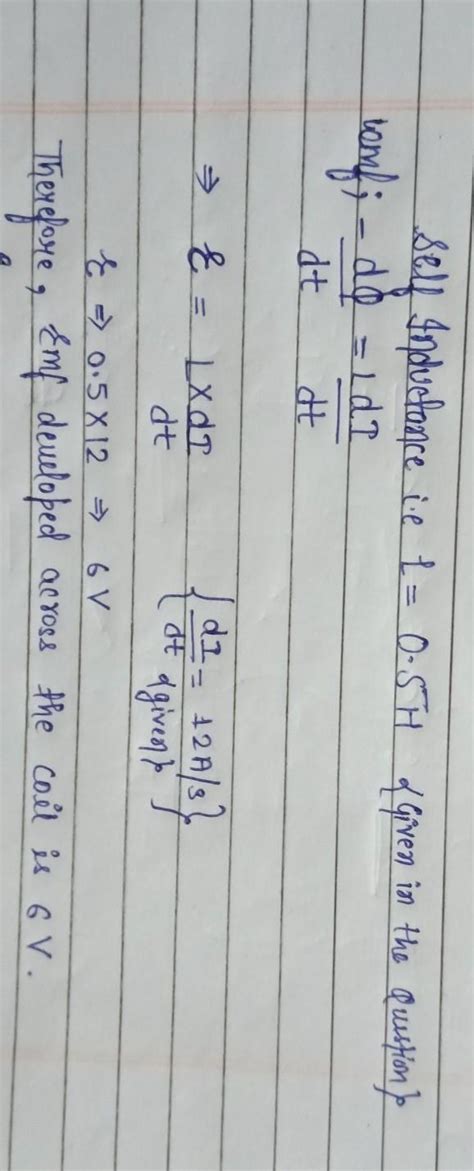 Self Inductance i.e L = 0.5H {given in the question}
emf; - dφ/dt = L dI/dt
⇒ ε = L × dI/dt { dI/dt = 12 A/s {given} }
ε ⇒ 0.5 × 12 ⇒ 6 V
Therefore, Emf developed across the coil is 6 V.